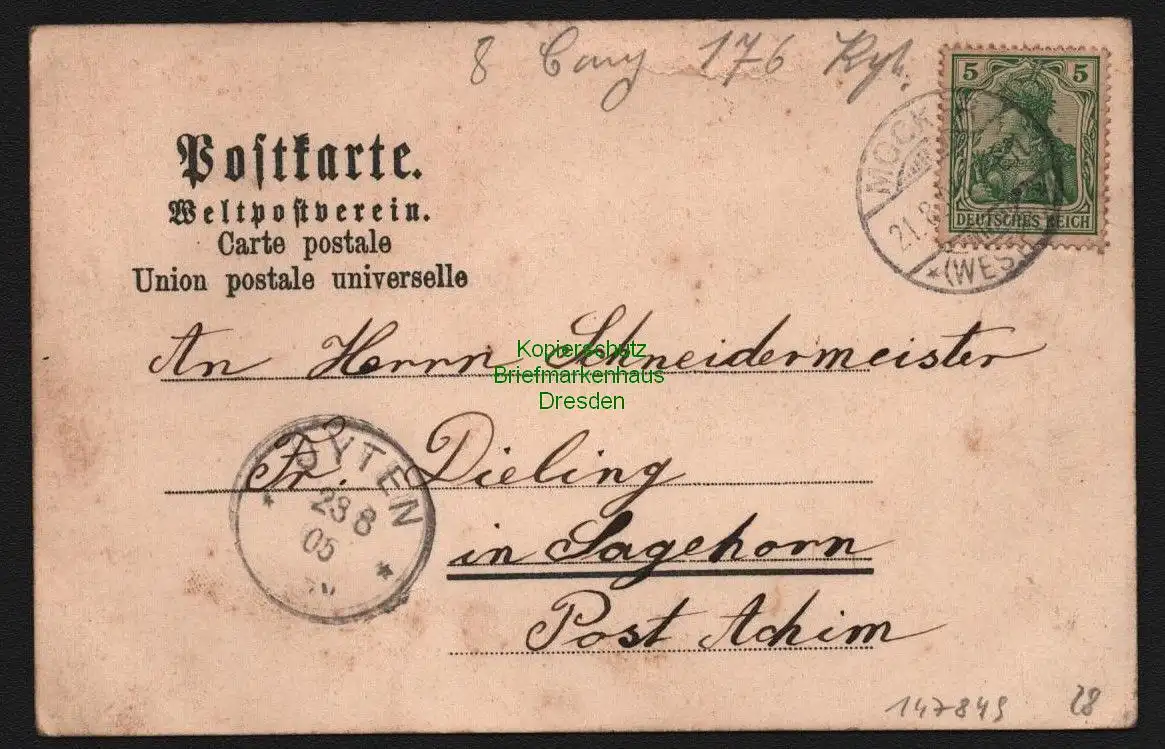 8 Comp 176 Rgt.
5 5
DEUTSCHES REICH
MOCK
21.8
*(WES
Postkarte.
Weltpostverein.
Carte postale
Union postale universelle
An Herrn Schneidermeister
Kopierschutz
Briefmarkenhaus
Dresden
Fr. Dieling
OYTEN
23 8
05
in Sagehorn
Post Achim
147849 28